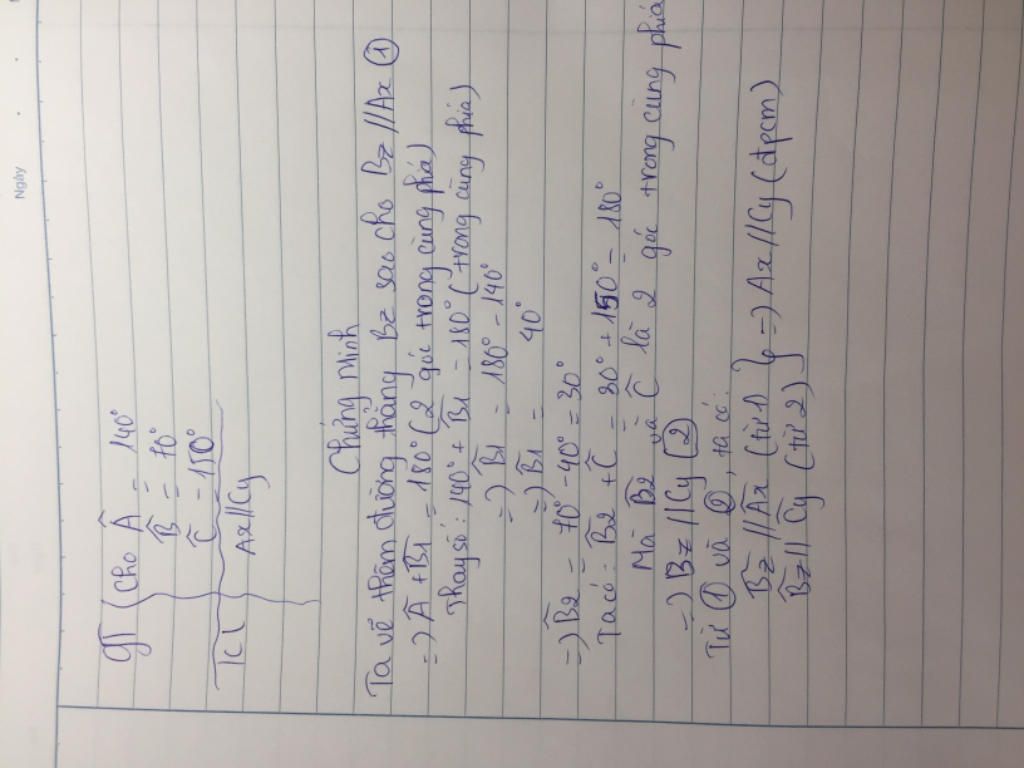 Ngày
GT Cho Â = 140°
B̂ = 70°
Ĉ = 150°
KL Ax//Cy
Chứng minh
Ta vẽ thêm đường thẳng Bz sao cho Bz //Ax ①
=) Â + B̂1 = 180° (2 góc trong cùng phía)
Thay số: 140° + B̂1 = 180° (trong cùng phía)
=) B̂1 = 180° - 140°
=) B̂1 = 40°
=) B̂2 = 70° - 40° = 30°
Ta có: B̂2 + Ĉ = 30° + 150° = 180°
Mà B̂2 và Ĉ là 2 góc trong cùng phía
=) Bz //Cy ②
Từ ① và ②, ta có:
Bz // Ax (từ 1) } =) Ax //Cy (đpcm)
Bz // Cy (từ 2)